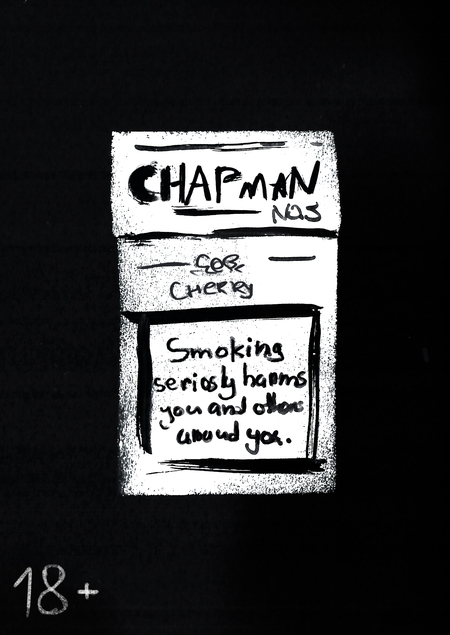 CHAPMAN
No5
CHERRY
Smoking
seriosly harms
you and others
around you.
18+